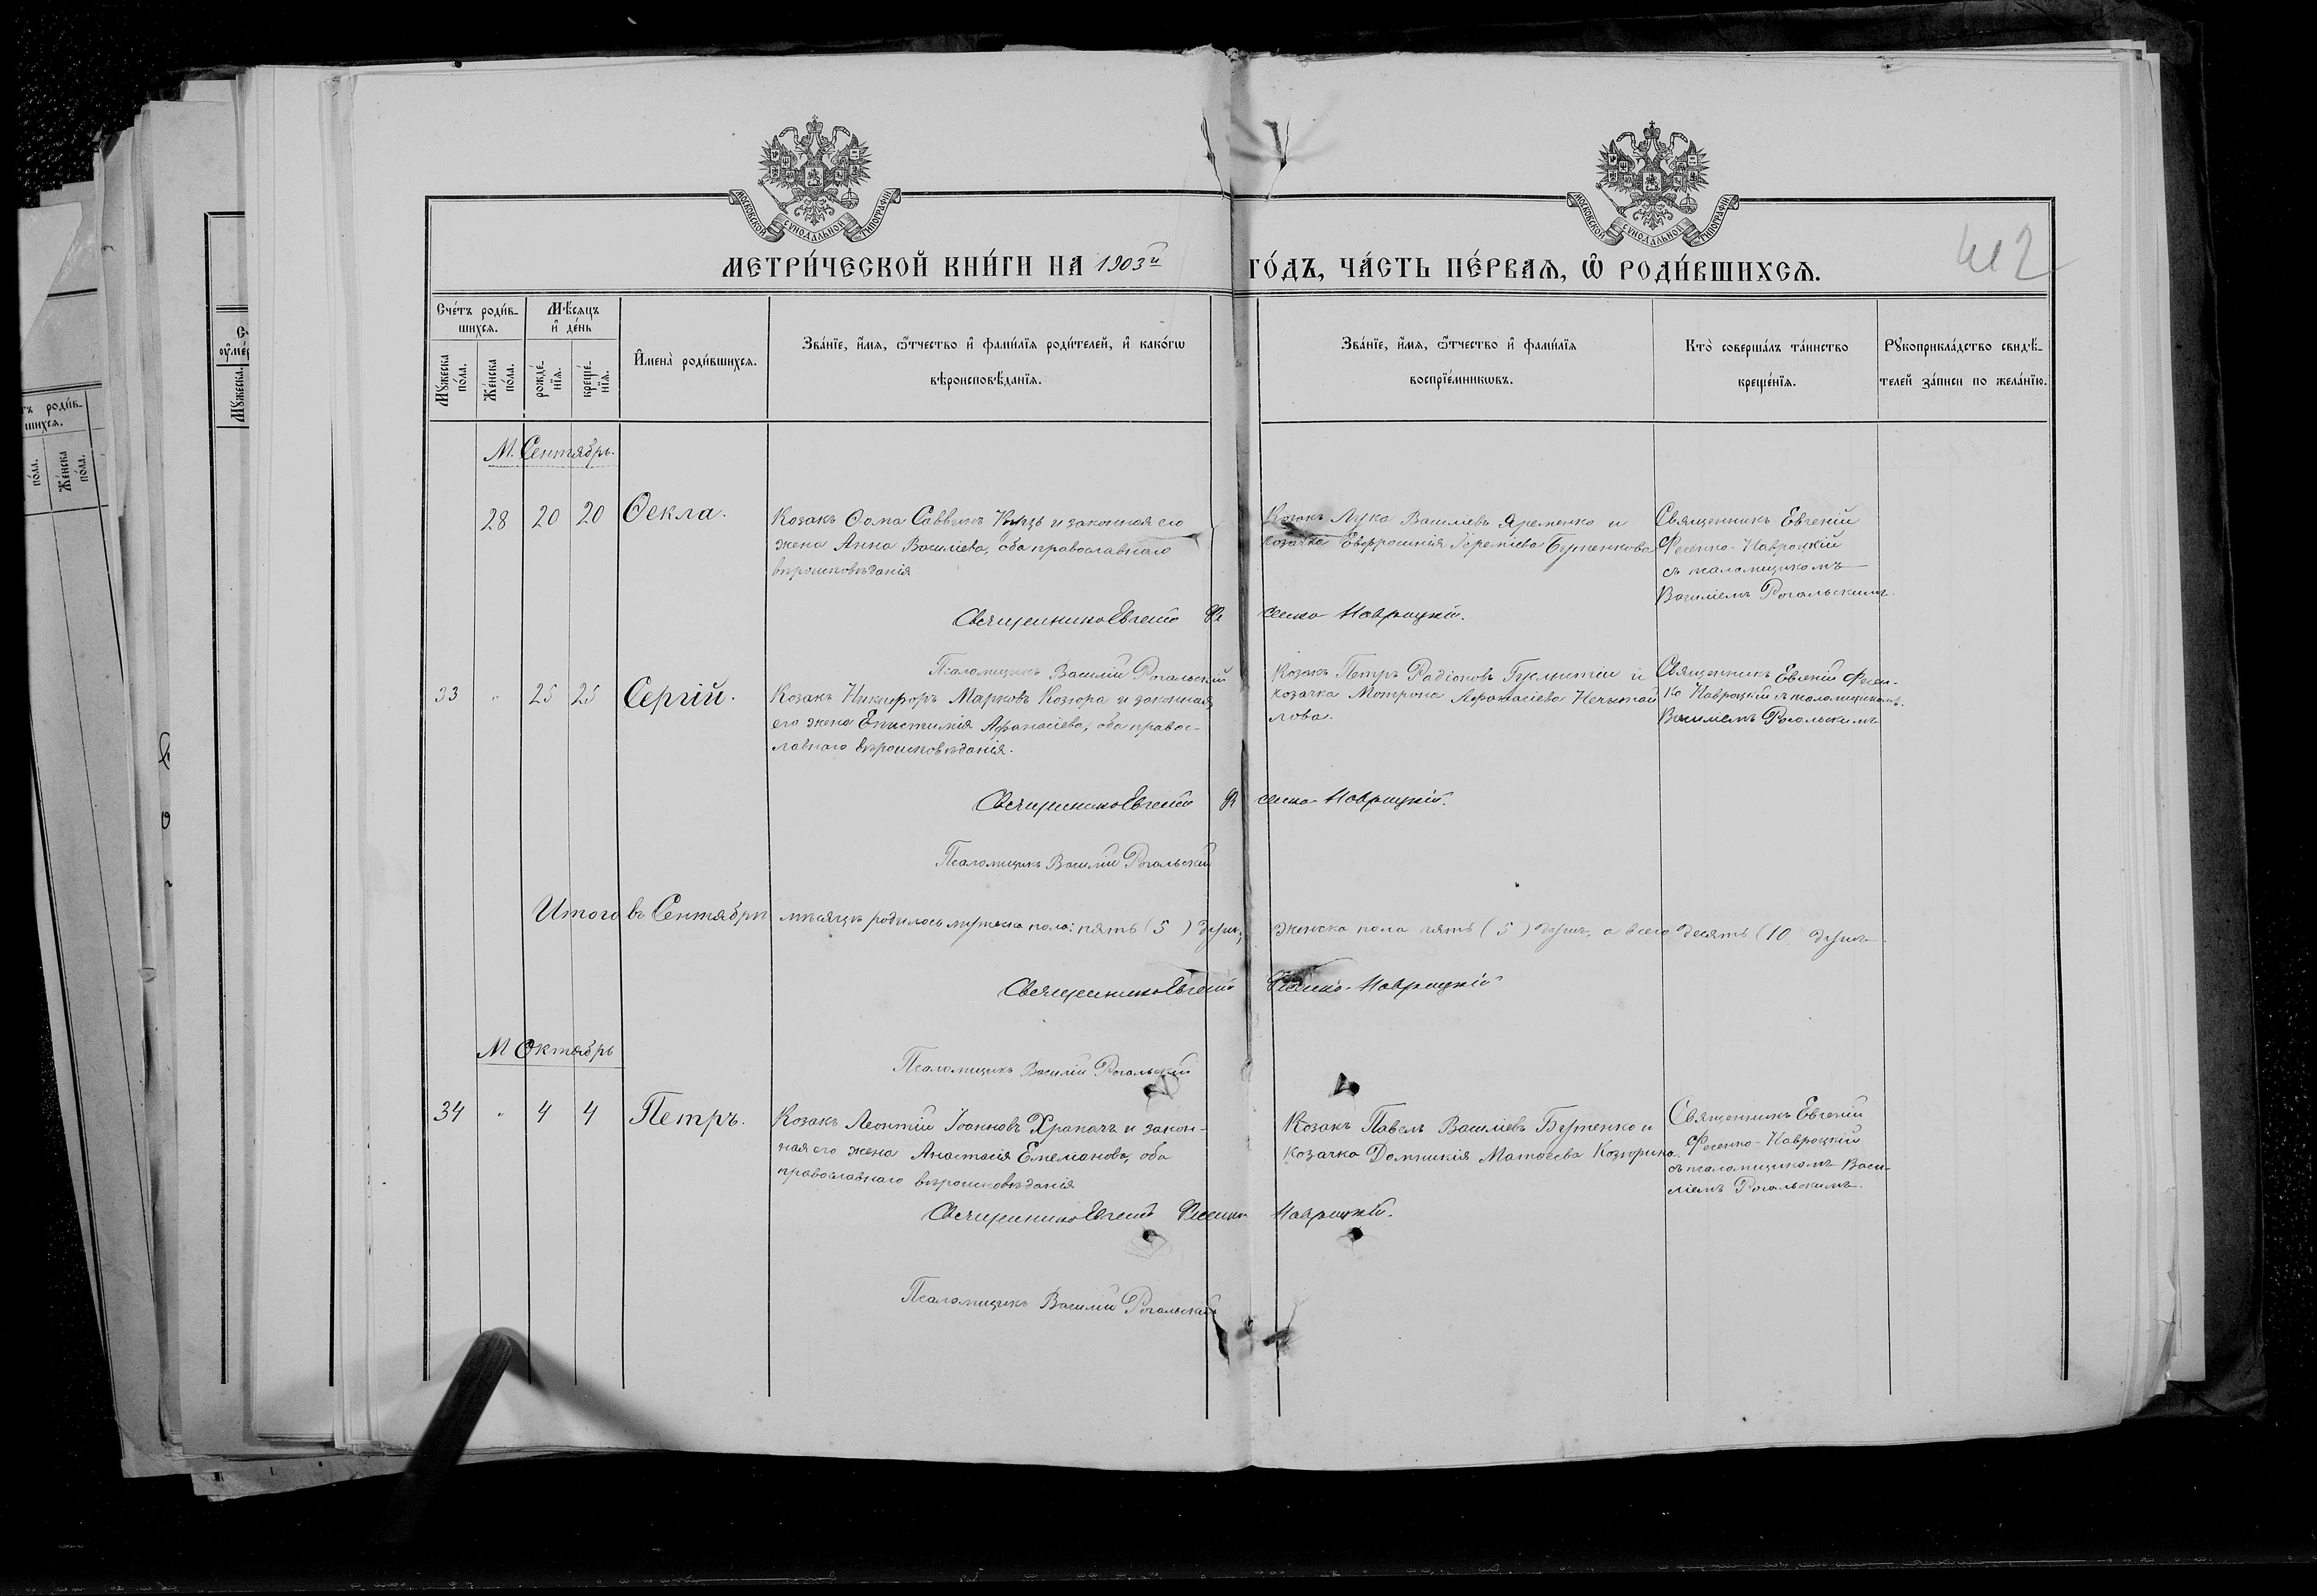 МОСКОВСКОЙ СѴНОДАЛЬНОЙ ТИПОГРАФІИ
МОСКОВСКОЙ СѴНОДАЛЬНОЙ ТИПОГРАФІИ
МЕТРИ́ЧЕСКОЙ КНИ́ГИ НА 1903й ГО́ДЪ, ЧА́СТЬ ПЕ́РВАѦ, Ѿ РОДИ́ВШИХСѦ.
412
Сче́тъ роди́в-
шихсѧ.
Мѣ́сѧцъ
и҆ де́нь
Мꙋ́жеска
по́ла.
Же́нска
по́ла.
рожде́-
нїѧ.
креще́-
нїѧ.
И҆мена̀ роди́вшихсѧ.
Зва́нїе, и҆́мѧ, ѻ҆́тчество и҆ фами́лїѧ роди́телей, и҆ како́гѡ
вѣроисповѣ́данїѧ.
Зва́нїе, и҆́мѧ, ѻ҆́тчество и҆ фами́лїѧ
воспрїе́мникѡвъ.
Кто̀ соверша́лъ та́инство
креще́нїѧ.
Рꙋкоприкла́дство свидѣ́-
телей за́писи по жела́нїю.
М. Сентябрь.
28 20 20 Ѳекла.
Козакъ Ѳома Саввинъ и законная его
жена Анна Васильева, оба православнаго
вѣроисповѣданія
Козакъ Лука Васильевъ Яременко и
козачка Евфросинія Іереміева Бутенкова
Священникъ Евгеній
Фесенко-Навроцкій
съ псаломщикомъ
Василіемъ Рогальскимъ.
Священникъ Евгеній Фесенко-Навроцкій.
Псаломщикъ Василій Рогальскій
33 " 25 25 Сергій.
Козакъ Никифоръ Марковъ Козюра и законная
его жена Епистимія Афанасіева, оба правос-
лавнаго вѣроисповѣданія.
Козакъ Петръ Радіоновъ и
козачка Мотрона Афанасіева Нечитай
лова.
Священникъ Евгеній Фесен-
ко Навроцкій съ псаломщикомъ.
Василіемъ Рогальскимъ
Священникъ Евгеній Фесенко-Навроцкій.
Псаломщикъ Василій Рогальскій
Итого въ Сентябрѣ мѣсяцѣ родилось мужеска пола: пять (5) душъ, женска пола пять (5) душъ, а всего десять (10 душъ.
Священникъ Евгеній Фесенко-Навроцкій
Псаломщикъ Василій Рогальскій
М Октябрь
34 " 4 4 Петръ.
Козакъ Леонтій Іоанновъ Храпачъ и закон-
ная его жена Анастасія Емеліанова, оба
православнаго вѣроисповѣданія
Козакъ Павелъ Васильевъ Бутенко и
козачка Домникія Матѳеева Козюрина.
Священникъ Евгеній
Фесенко-Навроцкій
съ псаломщикомъ Васи-
ліемъ Рогальскимъ.
Священникъ Евгеній Фесенко Навроцкій.
Псаломщикъ Василій Рогальскій